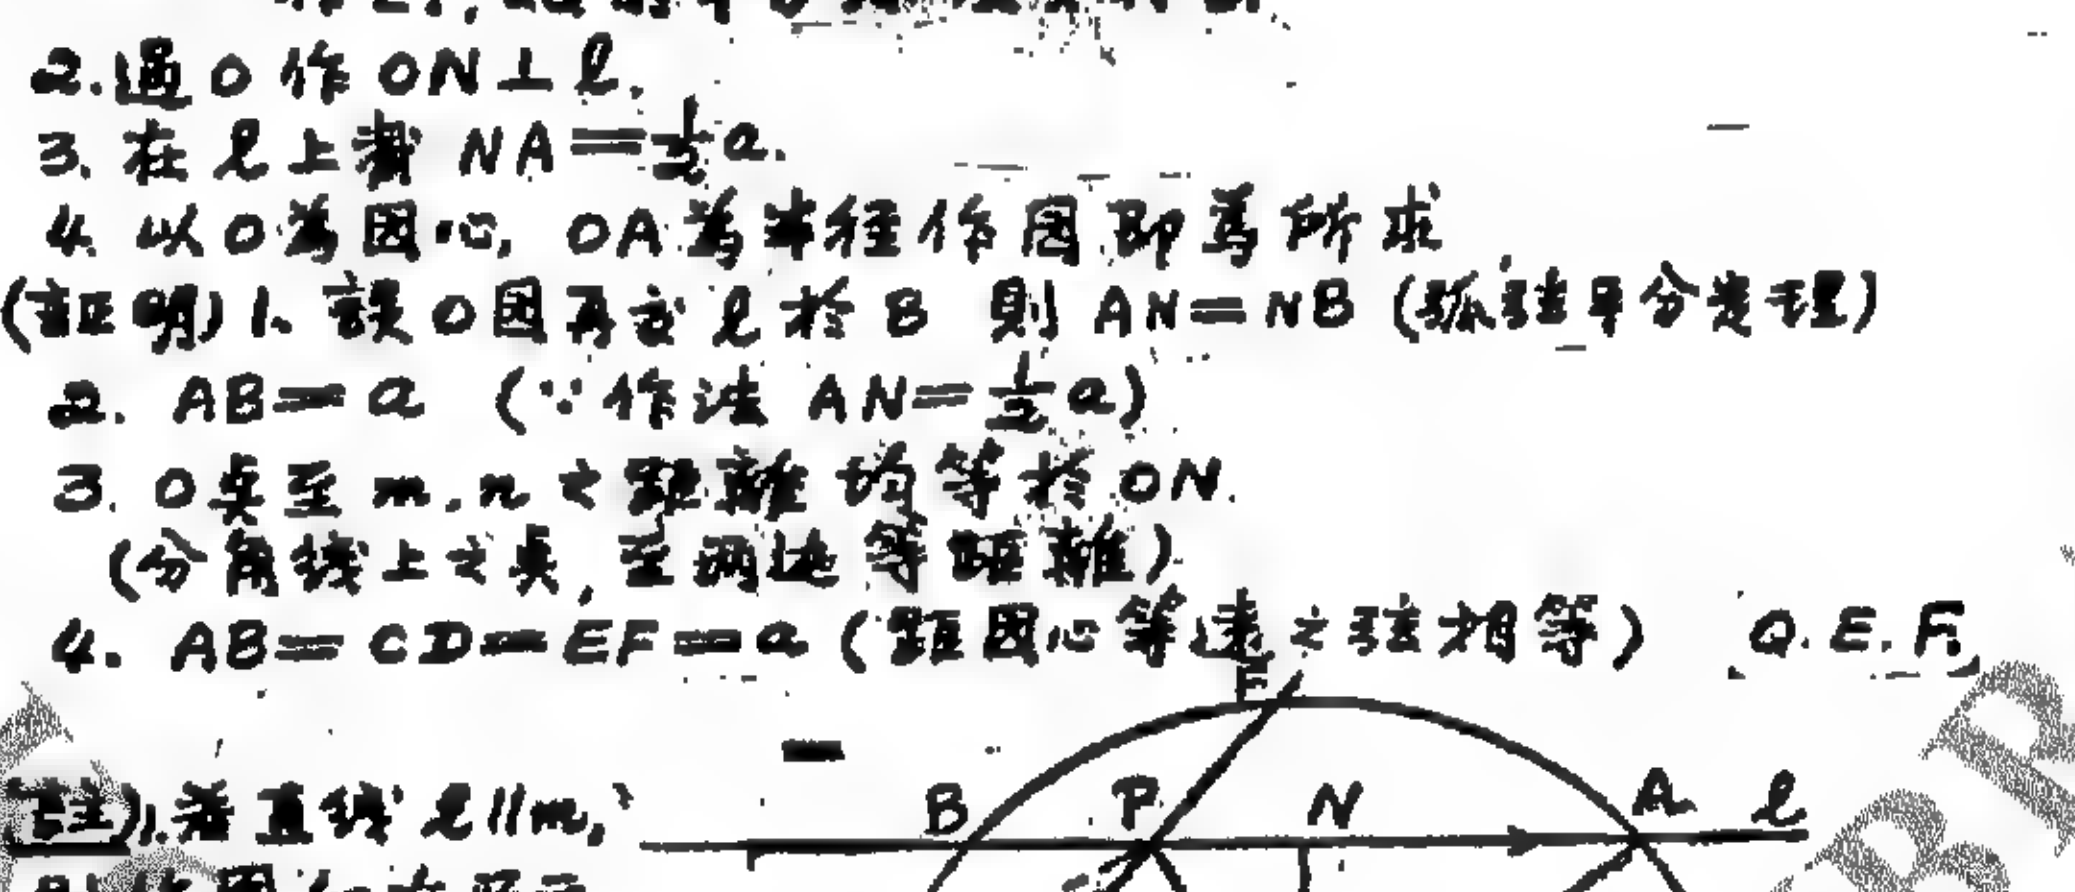 2. 過 O 作 ON⊥ℓ.
3. 在 ℓ 上截 NA=½a.
4. 以 O 為圓心, OA 為半徑作圓即為所求
(証明) 1. 設 O 圓再交 ℓ 於 B 則 AN=NB (弧弦平分定理)
2. AB=a (∵作法 AN=½a)
3. O 点至 m, n 之距離均等於 ON.
(分角线上之点, 至两边等距離)
4. AB=CD=EF=a (距圓心等遠之弦相等) Q.E.F.
E
(註)1. 若直线 ℓ//m,
B P N A ℓ